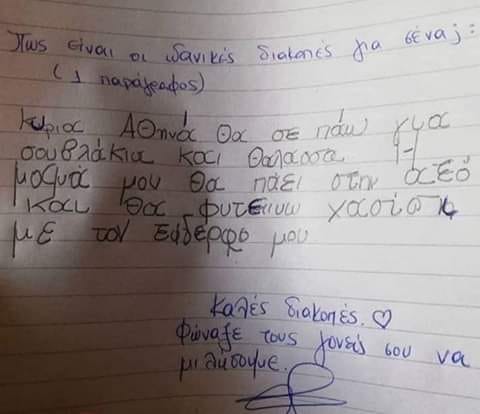 Πως είναι οι ιδανικές διακοπές για σένα;:
(1 παράγραφος)
Κυρια Αθηνά θα σε πάω γμα
σουβλάκια και θαλασσα Η
μαμά μου θα πάει στην
και θα φυτεψω χασίσι
με τον ξαδερφο μου
Καλές διακοπές. ♡
Φώναξε τους γονείς σου να
μιλήσουμε.